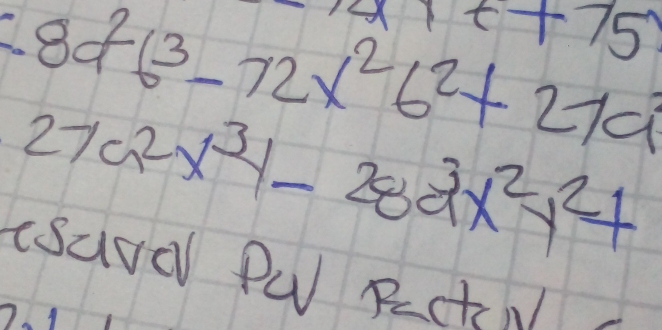 + 75
8a²b³ - 72x²b² + 27a²
27a²x³y - 28a³x²y² +
esolver Por Factor